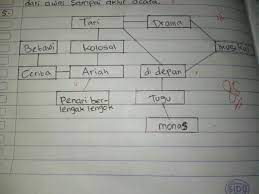 dari awal sampai akhir acara.
5.
Tari
Drama
Betawi
Kolosal
musikal
Cerita
Ariah
di depan
Penari ber-
lengak lengok
Tugu
monas